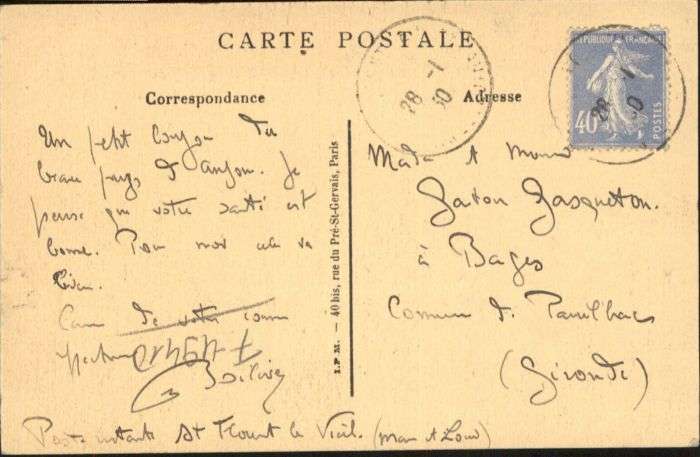 CARTE POSTALE
Correspondance
Adresse
Un petit bonjour du
beau pays d'Anjou. Je
pense que votre santé est
bonne. Pour moi cela va
bien.
de votre
F 11940
Poste restante St Florent le Vieil. (Maine et Loire)
I.P.M. — 40 bis, rue du Pré-St-Gervais, Paris
28 - 1
30
RÉPUBLIQUE FRANÇAISE
40c
POSTES
28 1
30
Mada et Monsi
Gaston Gasqueton.
à Bages
Comune d. Pauilhac
(Gironde)